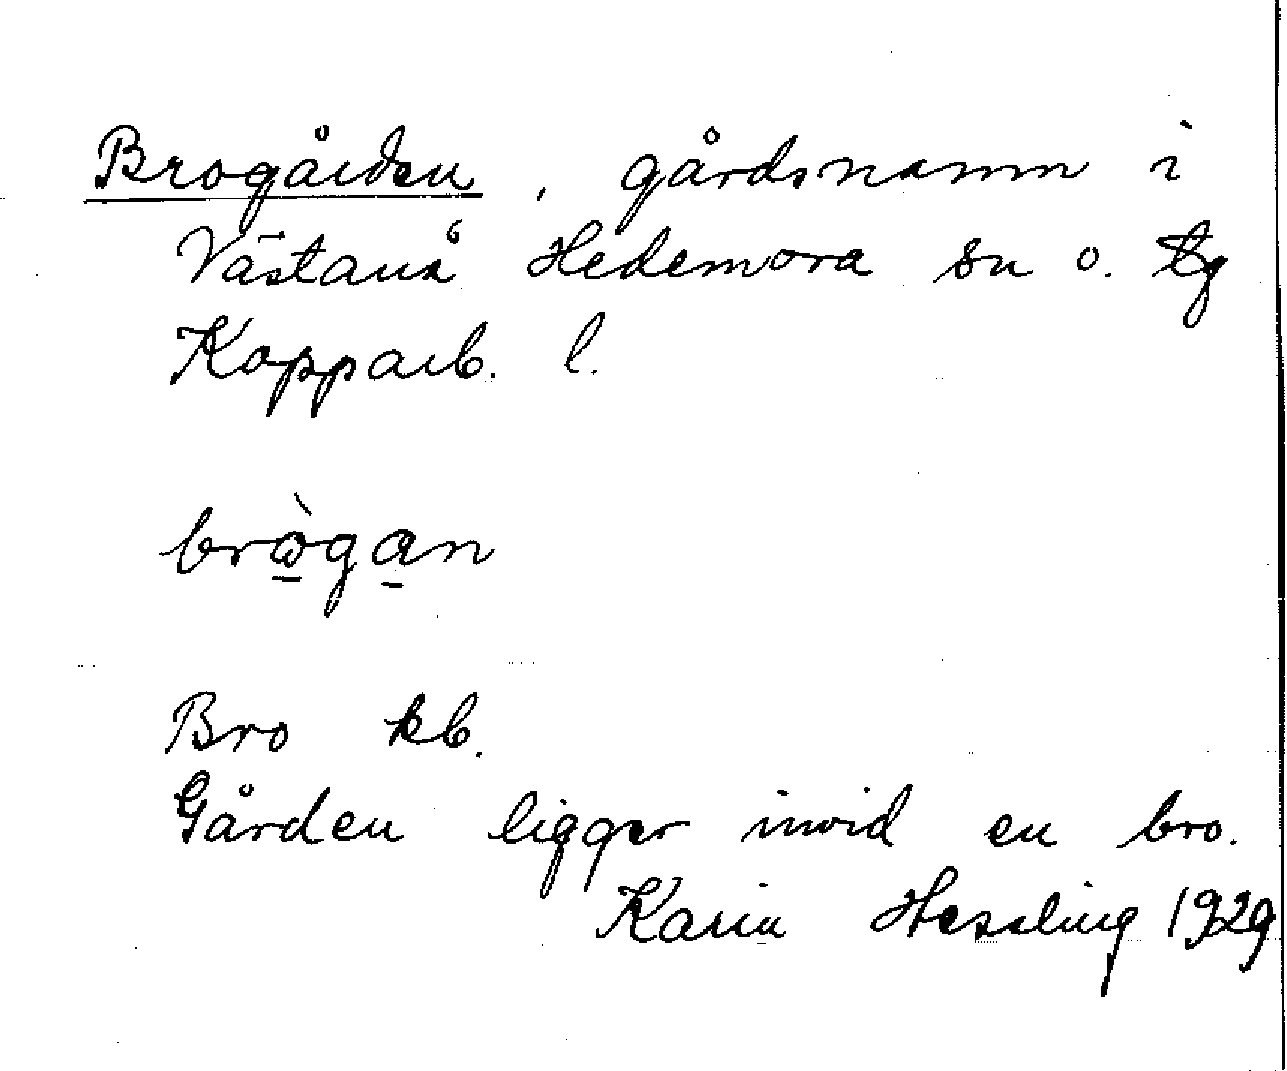 Brogården, gårdsnamn i
Västanå Hedemora sn o. tg
Kopparb. l.
brògan
Bro kb.
Gården ligger invid en bro.
Karin Hessling 1929